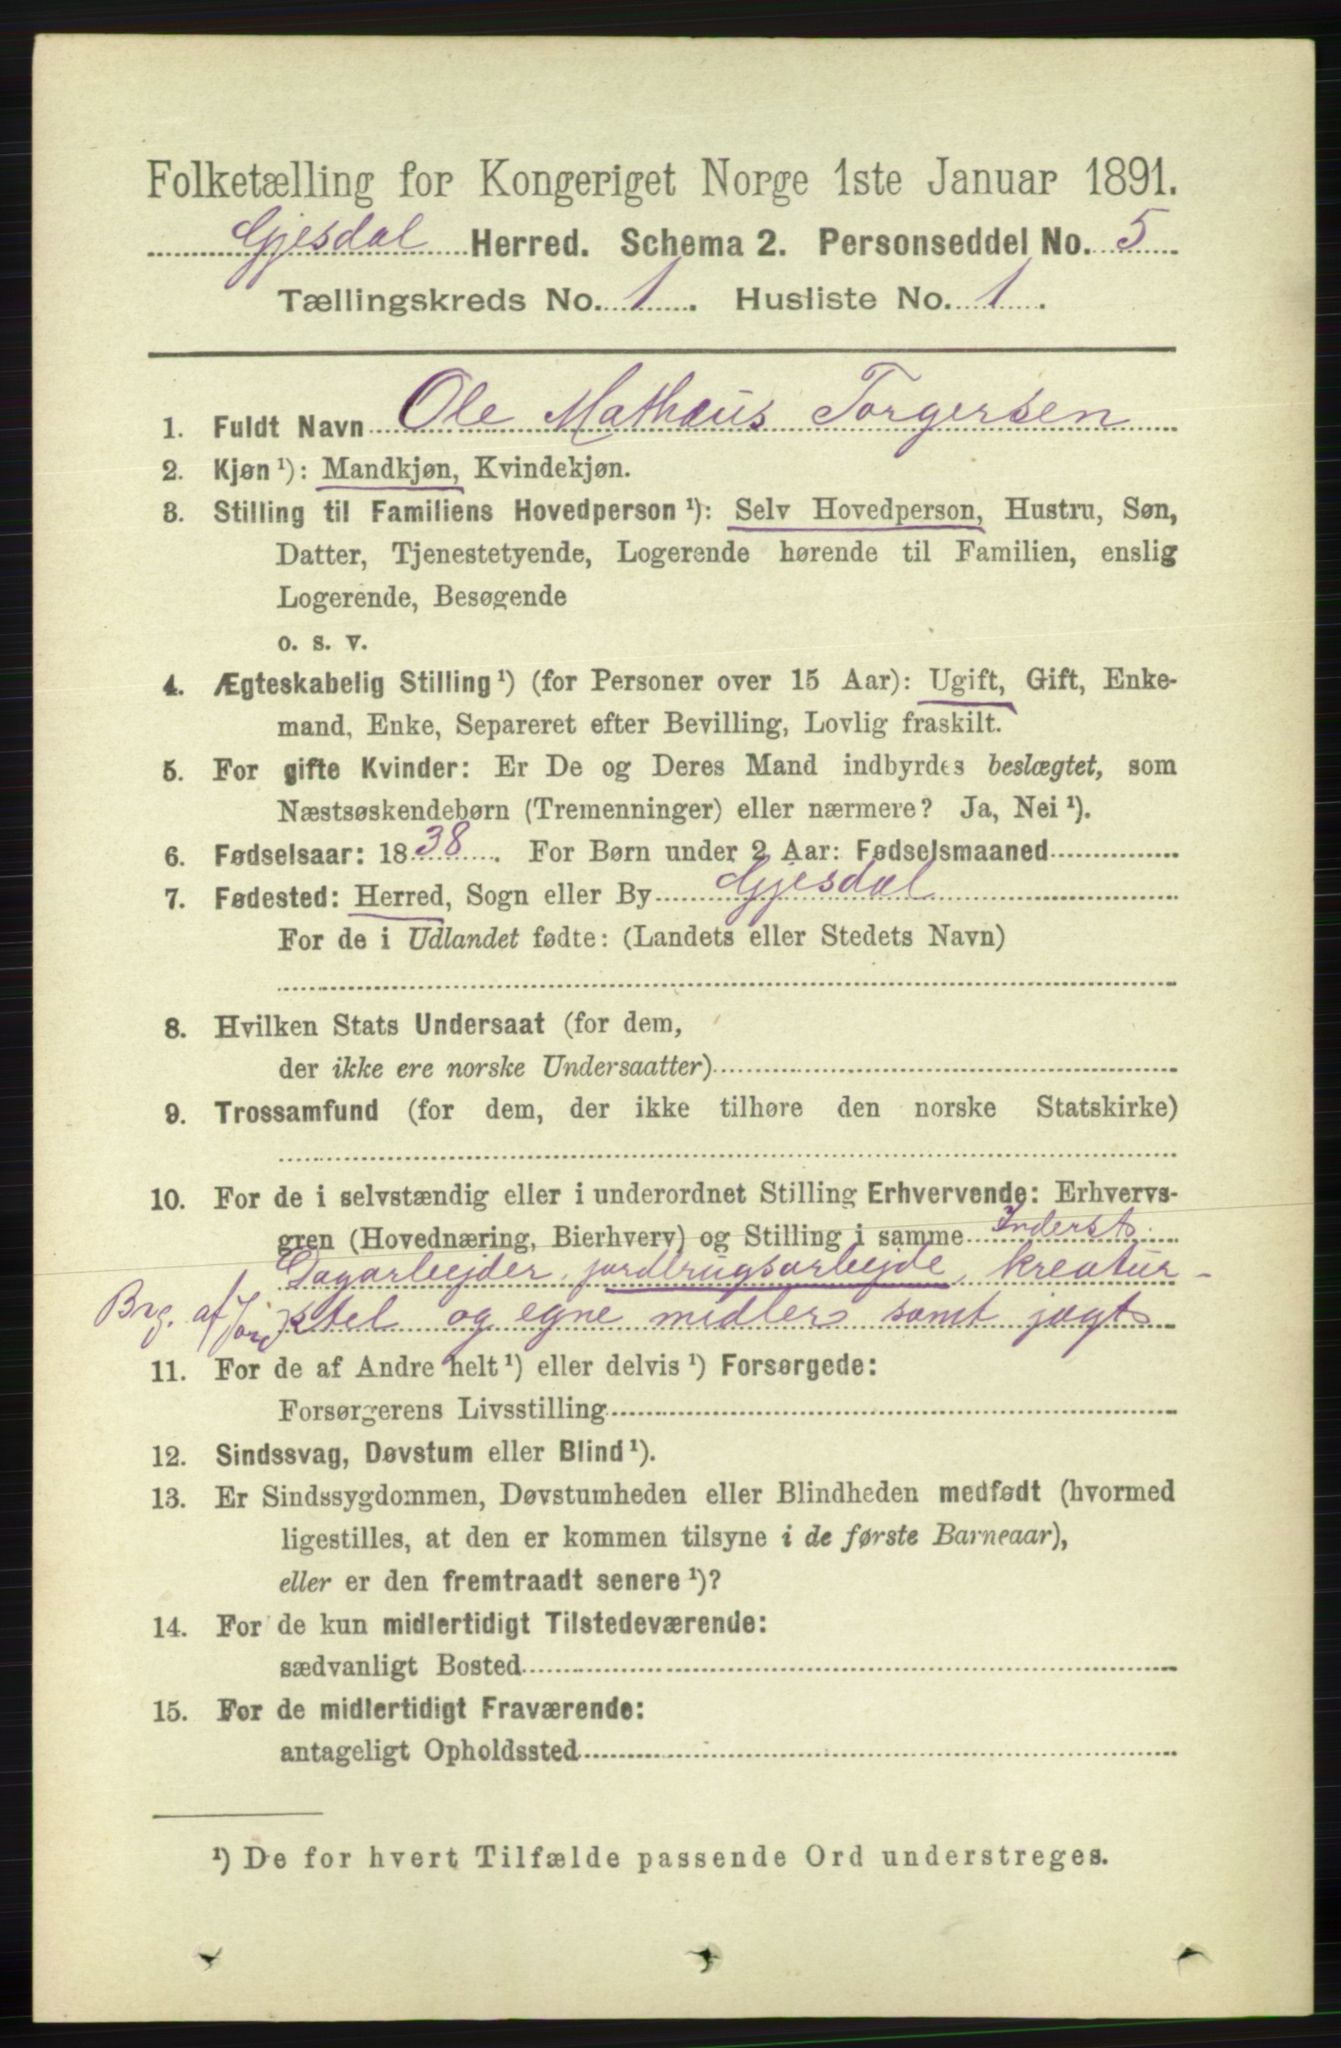 Folketælling for Kongeriget Norge 1ste Januar 1891.
Gjesdal Herred. Schema 2. Personseddel No. 5
Tællingskreds No. 1. Husliste No. 1.
1. Fuldt Navn Ole Mathæus Torgersen
2. Kjøn ¹): Mandkjøn, Kvindekjøn.
3. Stilling til Familiens Hovedperson ¹): Selv Hovedperson, Hustru, Søn,
Datter, Tjenestetyende, Logerende hørende til Familien, enslig
Logerende, Besøgende
o. s. v.
4. Ægteskabelig Stilling ¹) (for Personer over 15 Aar): Ugift, Gift, Enke-
mand, Enke, Separeret efter Bevilling, Lovlig fraskilt.
5. For gifte Kvinder: Er De og Deres Mand indbyrdes beslægtet, som
Næstsøskendebørn (Tremenninger) eller nærmere? Ja, Nei ¹).
6. Fødselsaar: 1838. For Børn under 2 Aar: Fødselsmaaned
7. Fødested: Herred, Sogn eller By Gjesdal
For de i Udlandet fødte: (Landets eller Stedets Navn)
8. Hvilken Stats Undersaat (for dem,
der ikke ere norske Undersaatter)
9. Trossamfund (for dem, der ikke tilhøre den norske Statskirke)
10. For de i selvstændig eller i underordnet Stilling Erhvervende: Erhvervs-
gren (Hovednæring, Bierhverv) og Stilling i samme Inderst.
Dagarbejder, jordbrugsarbejde, kreatur-
Brg. af Jord stel og egne midler samt jagt
11. For de af Andre helt ¹) eller delvis ¹) Forsørgede:
Forsørgerens Livsstilling
12. Sindssvag, Døvstum eller Blind ¹).
13. Er Sindssygdommen, Døvstumheden eller Blindheden medfødt (hvormed
ligestilles, at den er kommen tilsyne i de første Barneaar),
eller er den fremtraadt senere ¹)?
14. For de kun midlertidigt Tilstedeværende:
sædvanligt Bosted
15. For de midlertidigt Fraværende:
antageligt Opholdssted
¹) De for hvert Tilfælde passende Ord understreges.